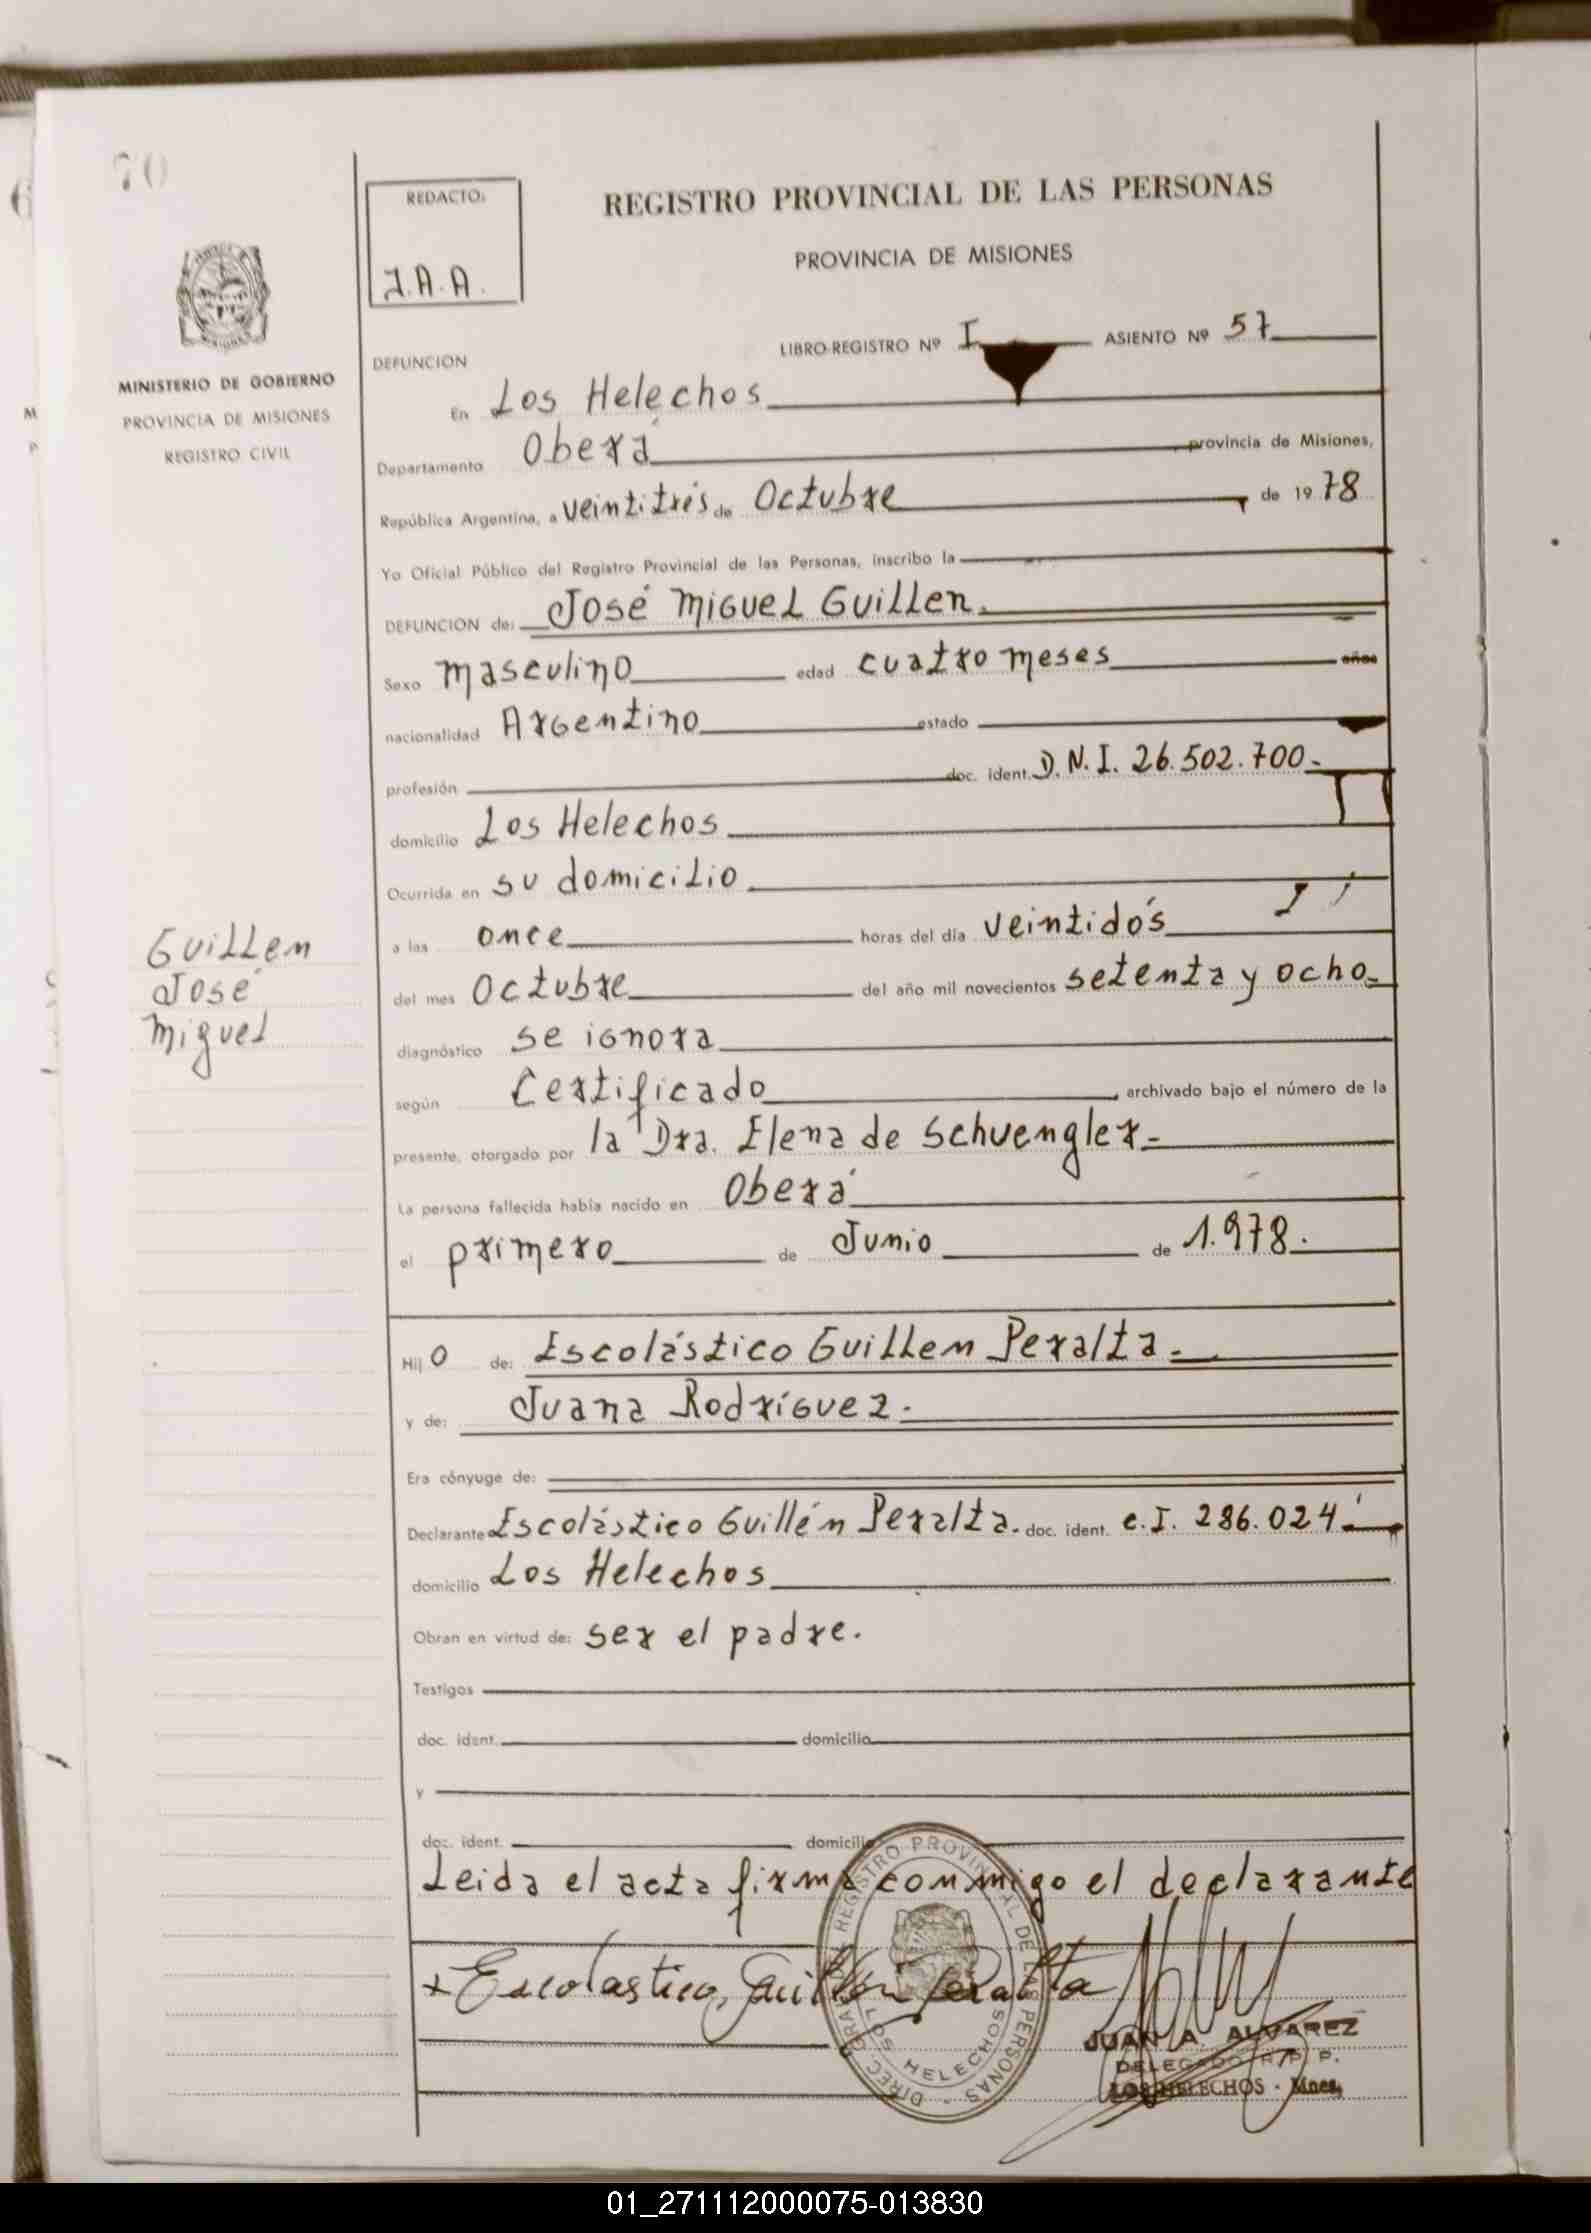 70
REDACTO:
J.A.A.
REGISTRO PROVINCIAL DE LAS PERSONAS
PROVINCIA DE MISIONES
MINISTERIO DE GOBIERNO
PROVINCIA DE MISIONES
REGISTRO CIVIL
DEFUNCION
LIBRO-REGISTRO Nº I ASIENTO Nº 57
En Los Helechos
Departamento Oberá provincia de Misiones,
República Argentina, a veintitrés de Octubre de 1978
Yo Oficial Público del Registro Provincial de las Personas, inscribo la
DEFUNCION de: José Miguel Guillen.
Sexo masculino edad cuatro meses años
nacionalidad Argentino estado
profesión doc. ident. D.N.I. 26.502.700.-
domicilio Los Helechos
Ocurrida en su domicilio
a las once horas del día veintidós
del mes Octubre del año mil novecientos setenta y ocho
diagnóstico se ignora
según Certificado, archivado bajo el número de la
presente, otorgado por la Dra. Elena de Schuengler.-
La persona fallecida había nacido en Oberá
el primero de Junio de 1.978.
Guillem
José
Miguel
Hijo de: Escolástico Guillem Peralta.-
y de: Juana Rodríguez.
Era cónyuge de:
Declarante Escolástico Guillén Peralta. doc. ident. c.I. 286.024.-
domicilio Los Helechos
Obran en virtud de: ser el padre.
Testigos
doc. ident. domicilio
y
doc. ident. domicilio
Leida el acta firma conmigo el declarante
+ Escolastico, Guillen Peralta
DIREC. GRAL. REGISTRO PROVINCIAL DE LAS PERSONAS
LOS HELECHOS
JUAN A. ALVAREZ
DELEGADO R. P. P.
LOS HELECHOS - Mnes.
01_271112000075-013830